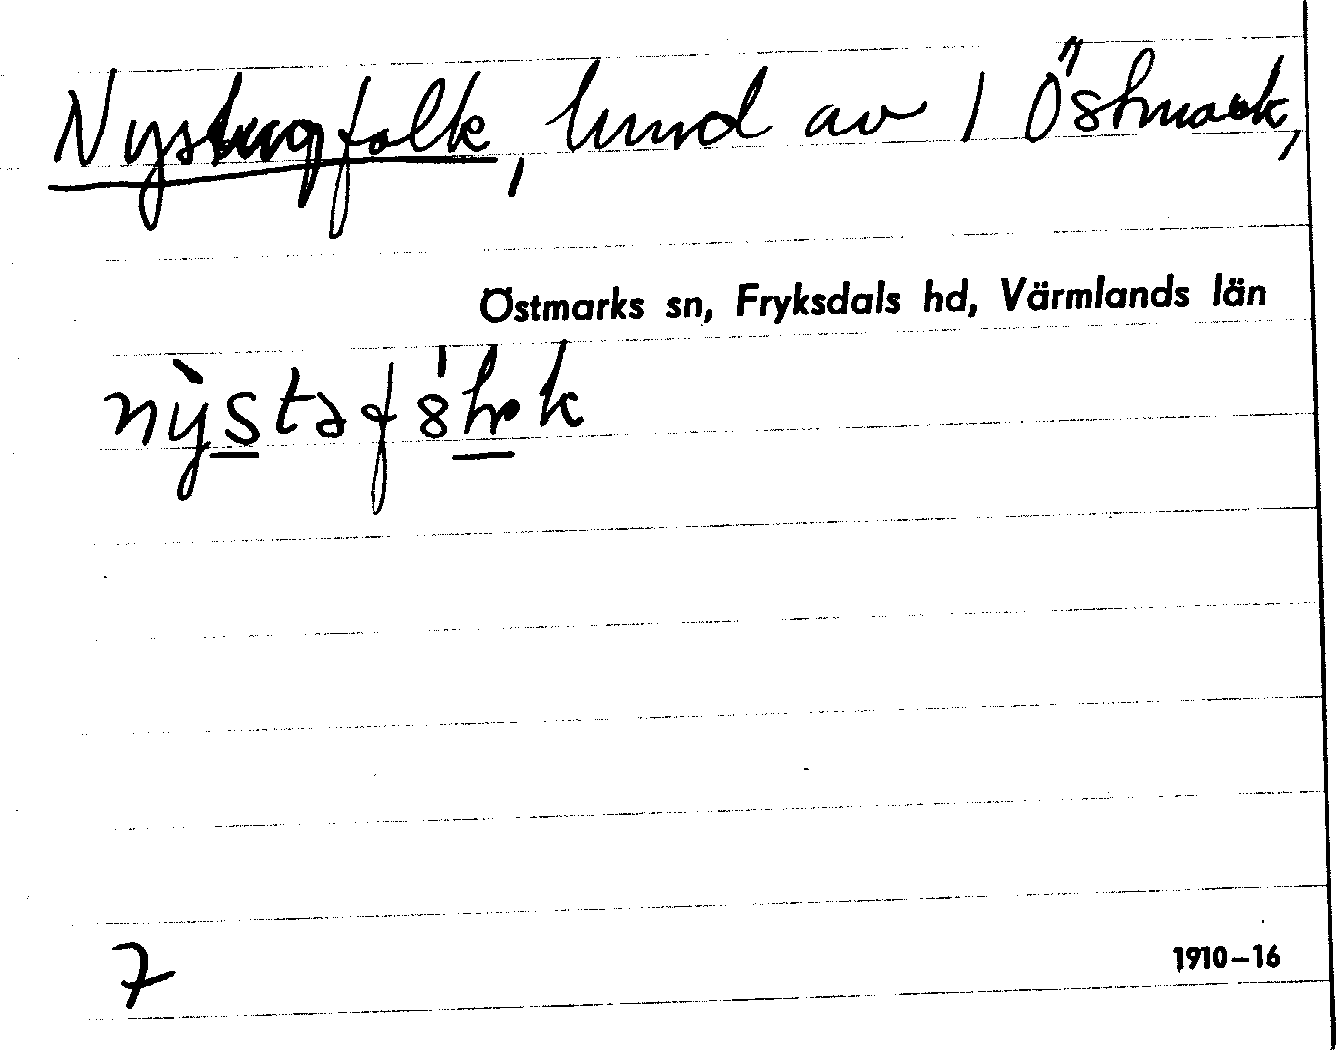 Nystugfolk, lund av 1 Östmark,
Östmarks sn, Fryksdals hd, Värmlands län
7
1910–16